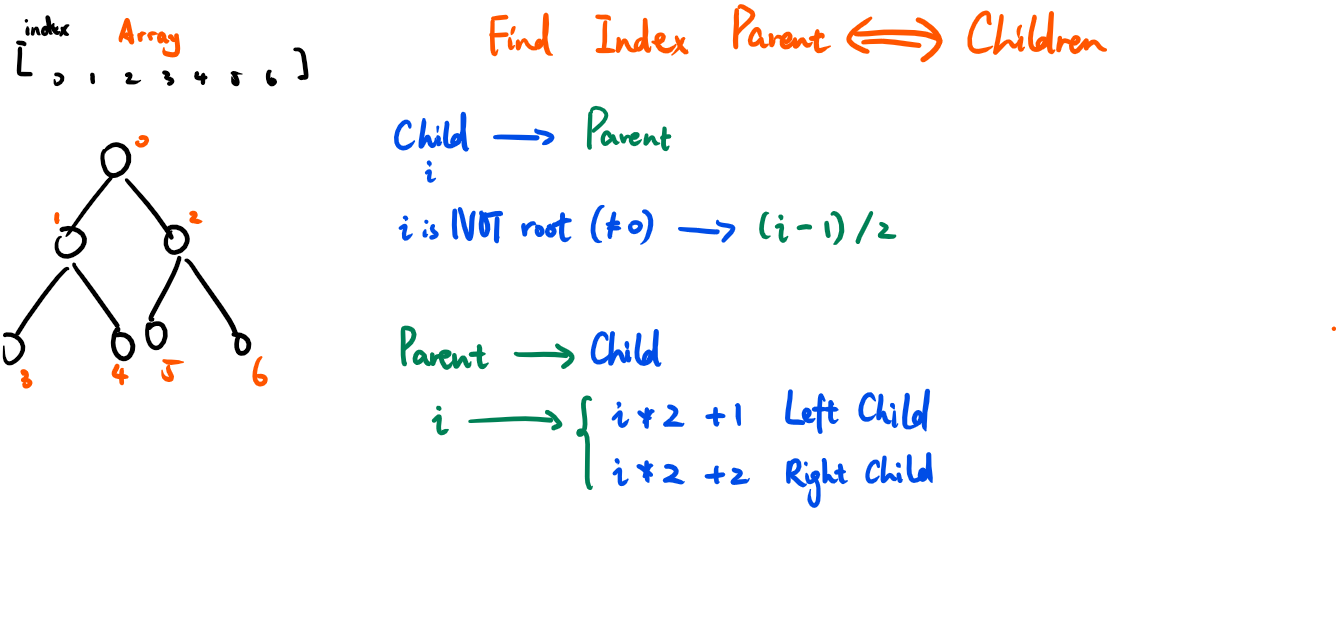 index Array
[ 0 1 2 3 4 5 6 ]
0
1 2
3 4 5 6
Find Index Parent ⟺ Children
Child → Parent
i
i is NOT root (≠0) → (i-1)/2
Parent → Child
i → { i * 2 + 1 Left Child
i * 2 + 2 Right Child